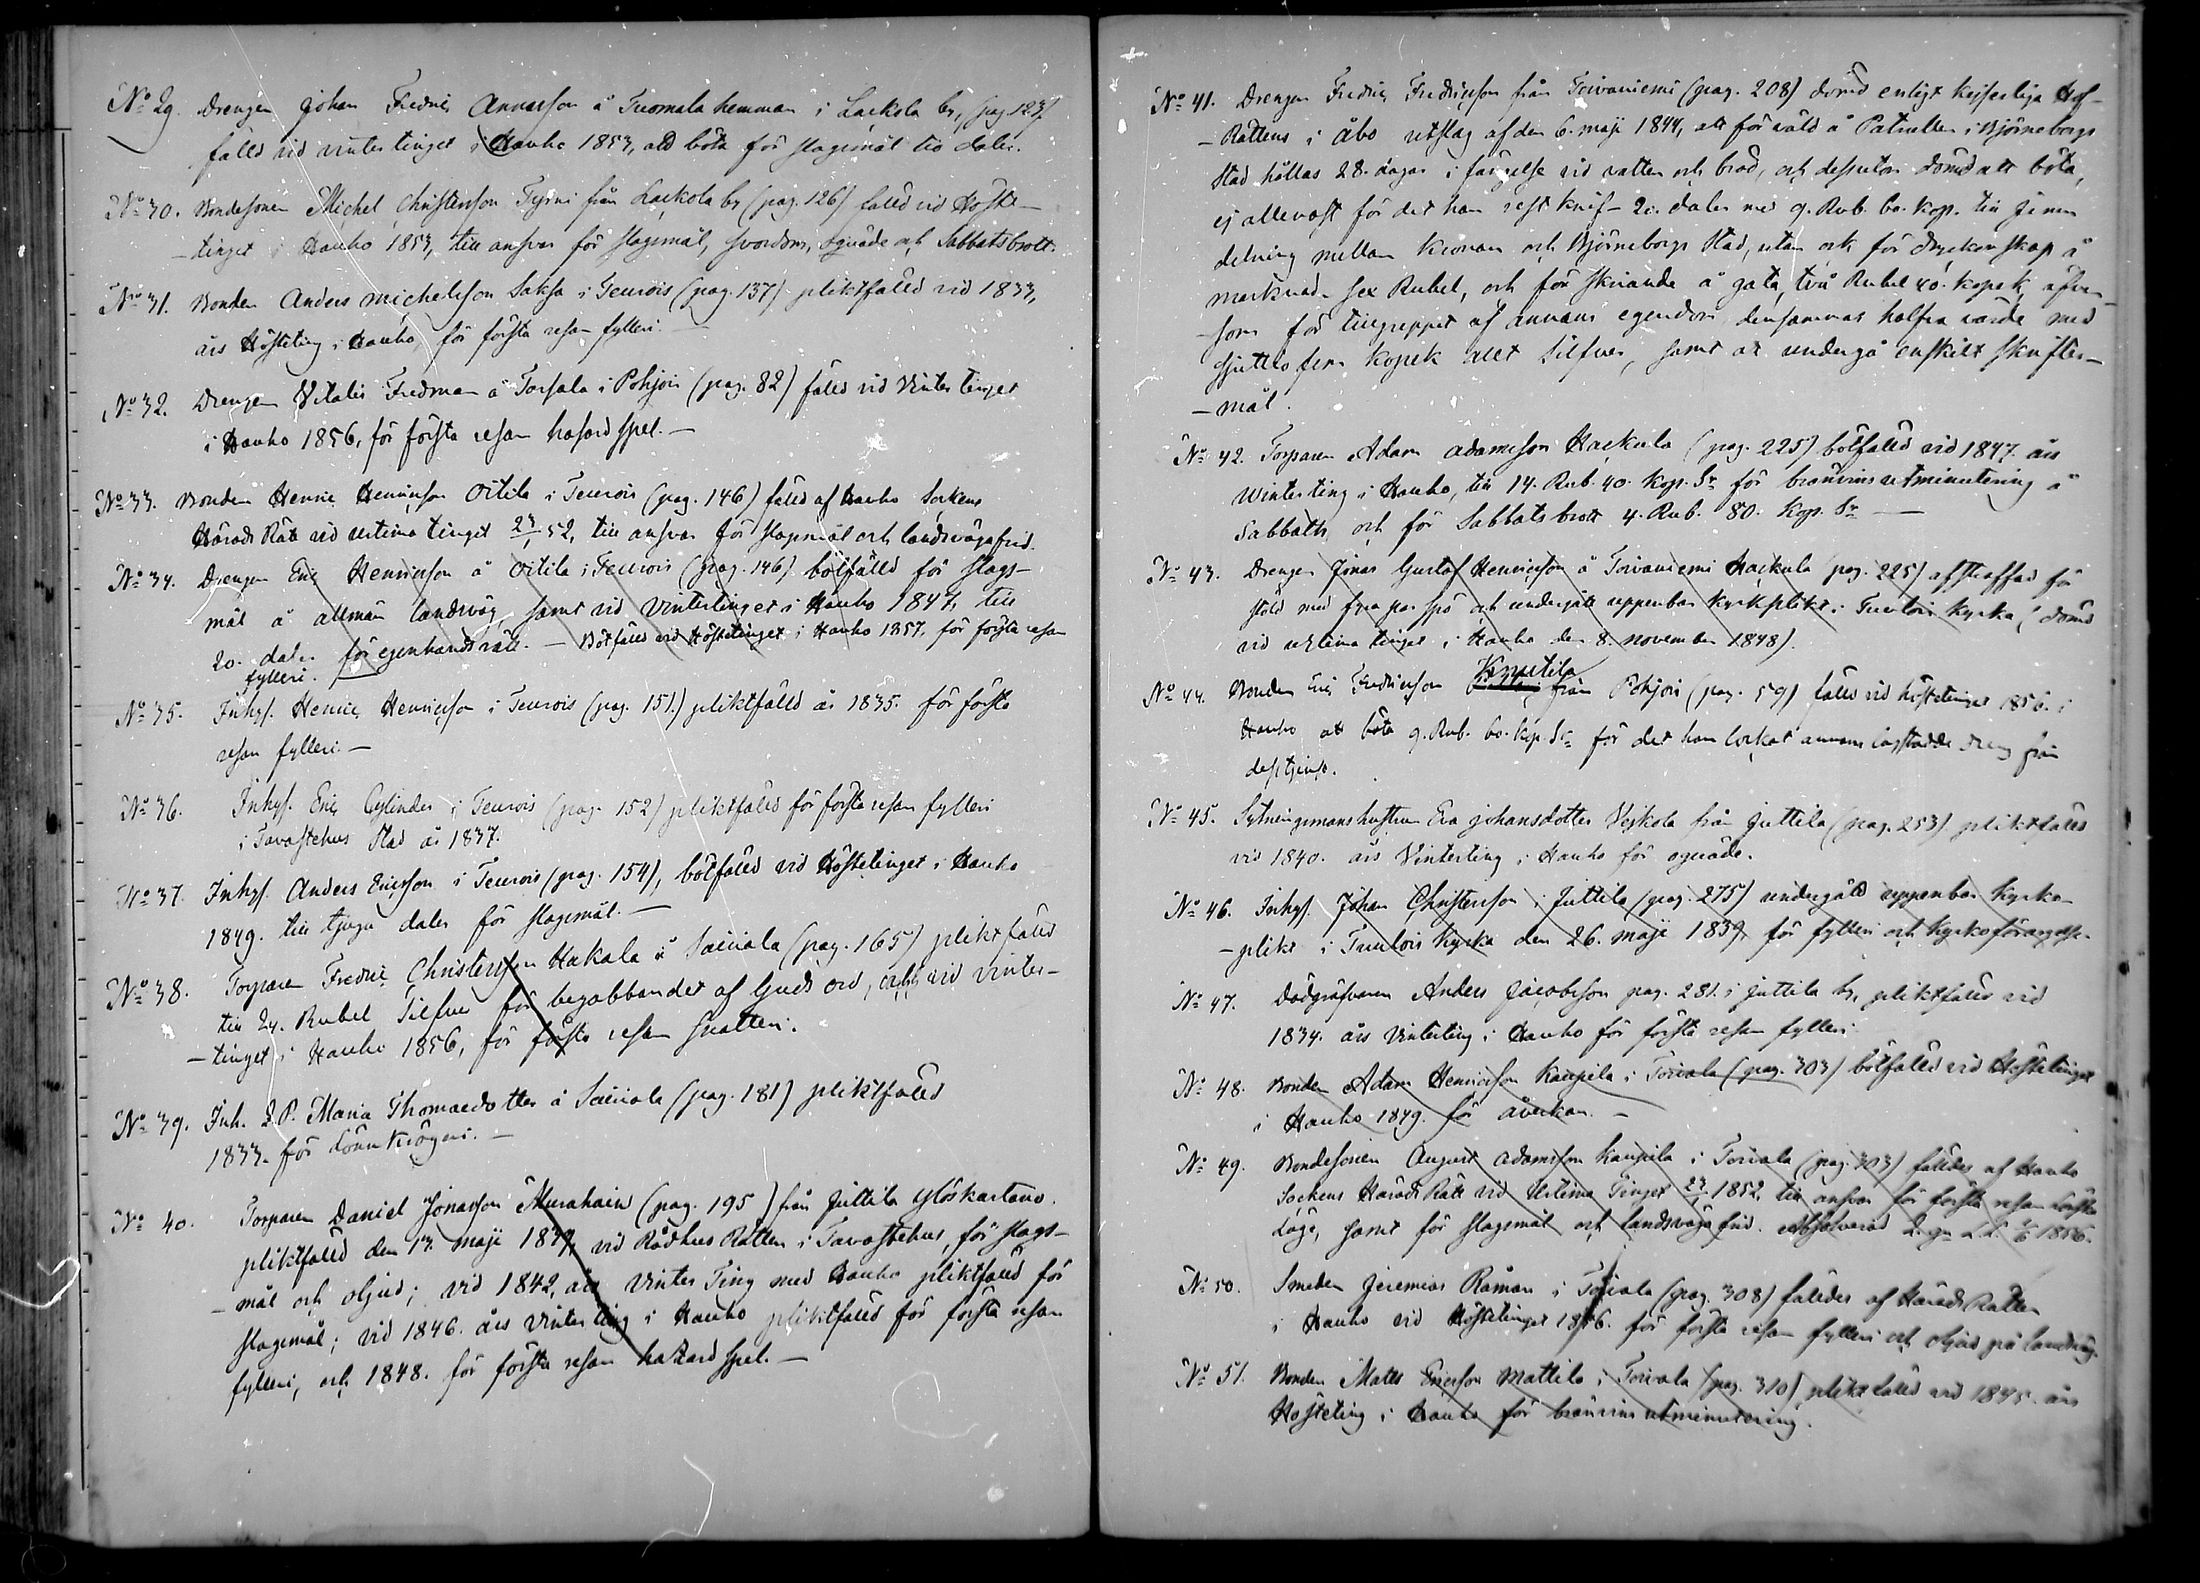 No 29. Drengen Johan Fredric Annasson å Tuomala hemman i Lackola by, (pag. 127)
fälld vid vintertinget i Hauho 1853, att böta för slagsmål tio daler.
No 30. Bondesonen Michel Christersson Tyrni från Lackola by (pag. 126) fälld vid Höste-
-tinget i Hauho 1853, till ansvar för slagsmål, svordom, oqväde och Sabbatsbrott.
No 31. Bonden Anders Michelsson Saksa i Teurois (pag. 137) pliktfälld vid 1833,
års Hösteting i Hauho, för första resan fylleri. —
No 32. Drengen Vitalis Fredman å Torsala i Pohjois (pag. 82) fälld vid Vintertinget
i Hauho 1856, för första resan hasardspel. —
No 33. Bonden Henric Henricsson Oitila i Teurois (pag. 146) fälld af Hauho Sockens
Härads Rätt vid urtima tinget 52, till ansvar för slagsmål och landsvägafrid.
No 34. Drengen Eric Henricsson å Oitila i Teurois (pag. 146) bötfälld för slags-
mål å allmän landsväg, samt vid Vintertinget i Hauho 1847, till
20. daler för egenhandsrätt. — Bötfälld vid Höstetinget i Hauho 1857, för första resan
fylleri.
No 35. Inhys. Henric Henricsson i Teurois (pag. 151.) pliktfälld år 1835. för första
resan fylleri. —
No 36. Inhys. Eric Cylinder i Teurois (pag. 152) pliktfälld för första resan fylleri
i Tavastehus Stad år 1837.
No 37. Inhys. Anders Ericsson i Teurois (pag. 154), bötfälld vid Höstetinget i Hauho
1849. till tjugu daler för slagsmål. —
No 38. Torparen Fredric Christersson Hakala å Sairiala (pag. 165) pliktfälld
till 24. Rubel Silfver för begabbandet af Guds ord, och vid vinter-
-tinget i Hauho 1856, för första resan snatteri.
No 39. Inh. E. P. Maria Thomaedotter å Sairiala (pag. 181) pliktfälld
1833. för lönnkrögeri. —
No 40. Torparen Daniel Jonasson Murahain (pag. 195) från Juttila Yliskartano.
pliktfälld den 13. maji 1837, vid Rådhus Rätten i Tavastehus, för slags-
-mål och oljud; vid 1842, års Vinter Ting med Hauho pliktfälld för
slagsmål; vid 1846. års Vinterting i Hauho pliktfälld för första resan
fylleri, och 1848. för första resan hazardspel. —
No 41. Drengen Fredric Fredricsson från Toivaniemi (pag. 208) dömd enligt Kejserliga Hof-
-Rättens i Åbo utslag af den 6. maji 1844, att för våld å Patrullen i Björneborgs
Stad hållas 28. dagar i fängelse vid vatten och bröd, och dessutom dömd att böta,
ej allenast för det han rest knif - 20. daler med 9. Rub. 60. kop. till jemn
delning mellan Kronan och Björneborgs Stad, utan ock för dryckenskap å
marknad - sex Rubel, och för skriande å gata, två Rubel 40. kopek, äfven-
som för tillgreppet af annans egendom densammas halfva värde med
sjuttiofem kopek allt Silfver, samt at undergå enskilt skrifter-
-mål.
No 42. Torparen Adam Adamsson Hackula (pag. 225) bötfälld vid 1847. års
Winterting i Hauho, till 14. Rub. 40. kop. Sr för bränvins utminutering å
Sabbath, och för Sabbatsbrott 4. Rub. 80. kop. Sr —
No 43. Drengen Jonas Gustaf Henricsson å Toivaniemi Hackula (pag. 225) afstraffad för
stöld med fyra par spö och undergått uppenbar kyrkplikt i Tuulois kyrka, (dömd
vid urtima tinget i Hauho den 8. november 1848).
No 44. Bonden Eric Fredricsson Knuutila från Pohjois (pag. 59) fälld vid höstetinget 1856. i
Hauho att böta 9. Rub. 60. kop. Sr för det han lockat annans lagstadde dreng från
dess tjenst.
No 45. Sytningsmanshustrun Eva Johansdotter Vejkola från Juttila (pag. 253) pliktfälld
vid 1840. års Vinterting i Hauho för oqväde.
No 46. Inhys. Johan Christersson i Juttila (pag. 275) undergått uppenbar kyrko-
-plikt i Tuulois Kyrka den 26. maji 1839, för fylleri och kyrkoförargelse.
No 47. Dödgräfvaren Anders Jacobsson pag. 281. i Juttila by, pliktfälld vid
1834. års Vinterting i Hauho för första resan fylleri.
No 48. Bonden Adam Henricsson Kaupila i Toivala (pag. 303) bötfälld vid Höstetinget
i Hauho 1849. för åverkan. —
No 49. Bondesonen August Adamsson Kaupila i Toivala (pag. 303) fälldes af Hauho
Sockens Härads Rätt vid Urtima Tinget 1852, till ansvar för första resan
samt för slagsmål och landsvägafrid. 1856.
No 50. Smeden Jeremias Råman i Toivala (pag. 308) fälldes af Härads Rätten
i Hauho vid Höstetinget 1856. för första resan fylleri och oljud på landsväg.
No 51. Bonden Matts Ericsson Mattila i Toivala (pag. 310) pliktfälld vid 1845. års
Hösteting i Hauho för bränvins utminutering.